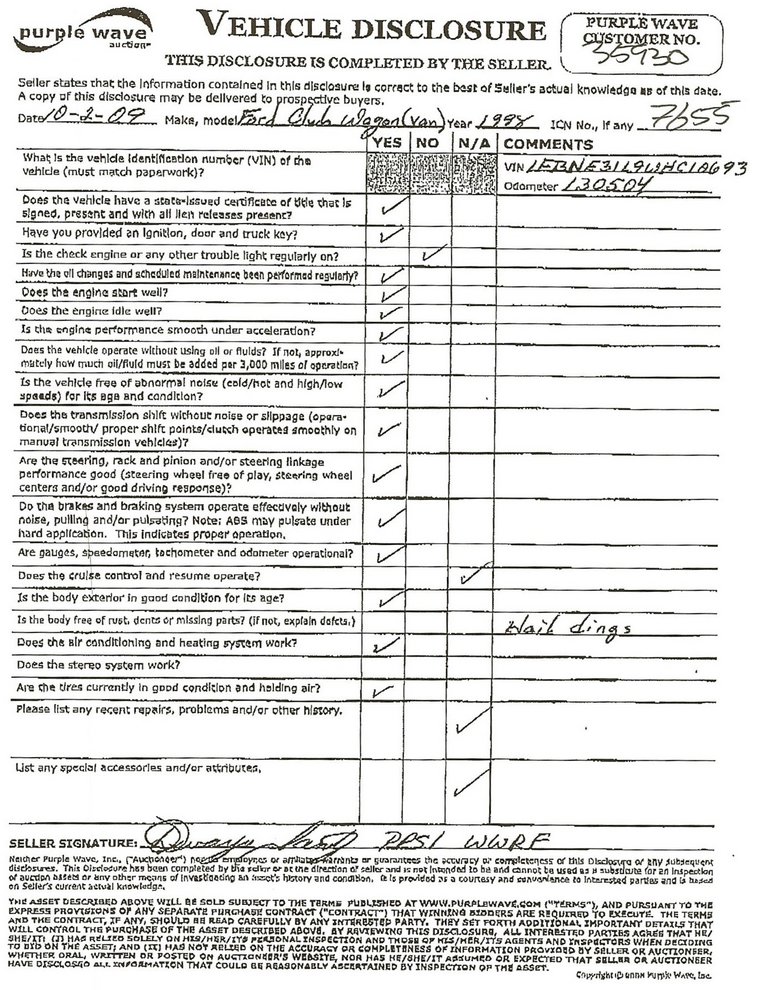 purple wave
auction™
VEHICLE DISCLOSURE
THIS DISCLOSURE IS COMPLETED BY THE SELLER.
PURPLE WAVE
CUSTOMER NO.
35930
Seller states that the information contained in this disclosure is correct to the best of Seller's actual knowledge as of this date.
A copy of this disclosure may be delivered to prospective buyers.
Date 10-2-09 Make, model Ford Club Wagon (van) Year 1998 ICN No., if any 7655
YES NO N/A COMMENTS
What is the vehicle identification number (VIN) of the
vehicle (must match paperwork)?
VIN
Odometer 130504
Does the vehicle have a state-issued certificate of title that is
signed, present and with all lien releases present? ✓
Have you provided an ignition, door and truck key? ✓
Is the check engine or any other trouble light regularly on? ✓
Have the oil changes and scheduled maintenance been performed regularly? ✓
Does the engine start well? ✓
Does the engine idle well? ✓
Is the engine performance smooth under acceleration? ✓
Does the vehicle operate without using oil or fluids? If not, approxi-
mately how much oil/fluid must be added per 3,000 miles of operation? ✓
Is the vehicle free of abnormal noise (cold/hot and high/low
speeds) for its age and condition? ✓
Does the transmission shift without noise or slippage (opera-
tional/smooth/ proper shift points/clutch operated smoothly on
manual transmission vehicles)? ✓
Are the steering, rack and pinion and/or steering linkage
performance good (steering wheel free of play, steering wheel
centers and/or good driving response)? ✓
Do the brakes and braking system operate effectively without
noise, pulling and/or pulsating? Note: ABS may pulsate under
hard application. This indicates proper operation. ✓
Are gauges, speedometer, tachometer and odometer operational? ✓
Does the cruise control and resume operate? ✓
Is the body exterior in good condition for its age? ✓
Is the body free of rust, dents or missing parts? (if not, explain defects.) Hail dings
Does the air conditioning and heating system work? ✓
Does the stereo system work?
Are the tires currently in good condition and holding air? ✓
Please list any recent repairs, problems and/or other history. ✓
List any special accessories and/or attributes. ✓
SELLER SIGNATURE: PPSI WWRF
Neither Purple Wave, Inc., ("Auctioneer") nor its employees or affiliates warrants or guarantees the accuracy or completeness of this Disclosure or any subsequent
disclosures. This Disclosure has been completed by the seller or at the direction of seller and is not intended to be and cannot be used as a substitute for an inspection
of auction assets or any other means of investigating an asset's history and condition. It is provided as a courtesy and convenience to interested parties and is based
on Seller's current actual knowledge.
THE ASSET DESCRIBED ABOVE WILL BE SOLD SUBJECT TO THE TERMS PUBLISHED AT WWW.PURPLEWAVE.COM ("TERMS"), AND PURSUANT TO THE
EXPRESS PROVISIONS OF ANY SEPARATE PURCHASE CONTRACT ("CONTRACT") THAT WINNING BIDDERS ARE REQUIRED TO EXECUTE. THE TERMS
AND THE CONTRACT, IF ANY, SHOULD BE READ CAREFULLY BY ANY INTERESTED PARTY. THEY SET FORTH ADDITIONAL IMPORTANT DETAILS THAT
WILL CONTROL THE PURCHASE OF THE ASSET DESCRIBED ABOVE. BY REVIEWING THIS DISCLOSURE, ALL INTERESTED PARTIES AGREE THAT HE/
SHE/IT: (I) HAS RELIED SOLELY ON HIS/HER/ITS PERSONAL INSPECTION AND THOSE OF HIS/HER/ITS AGENTS AND INSPECTORS WHEN DECIDING
TO BID ON THE ASSET; AND (II) HAS NOT RELIED ON THE ACCURACY OR COMPLETENESS OF INFORMATION PROVIDED BY SELLER OR AUCTIONEER,
WHETHER ORAL, WRITTEN OR POSTED ON AUCTIONEER'S WEBSITE, NOR HAS HE/SHE/IT ASSUMED OR EXPECTED THAT SELLER OR AUCTIONEER
HAVE DISCLOSED ALL INFORMATION THAT COULD BE REASONABLY ASCERTAINED BY INSPECTION OF THE ASSET.
Copyright © 2008 Purple Wave, Inc.